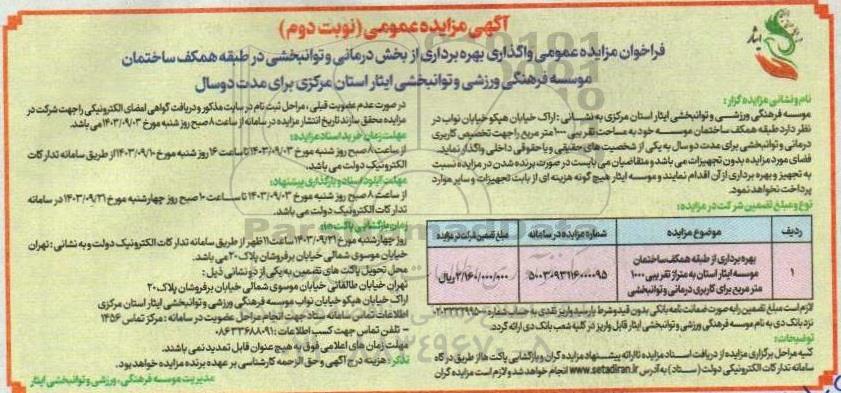 آگهی مزایده عمومی (نوبت دوم)
فراخوان مزایده عمومی واگذاری بهره برداری از بخش درمانی و توانبخشی در طبقه همکف ساختمان
موسسه فرهنگی ورزشی و توانبخشی ایثار استان مرکزی برای مدت دوسال
ایثار
نام و نشانی مزایده گزار:
موسسه فرهنگی ورزشی و توانبخشی ایثار استان مرکزی به نشانی: اراک خیابان هپکو خیابان نواب در
نظر دارد طبقه همکف ساختمان موسسه خود به مساحت تقریبی ۱۰۰۰ متر مربع را جهت تخصیص کاربری
درمانی و توانبخشی برای مدت دو سال به یکی از شخصیت های حقیقی و یا حقوقی داخلی واگذار نماید.
فضای مورد مزایده بدون تجهیزات می باشد و متقاضیان می بایست در صورت برنده شدن در مزایده نسبت
به تجهیز و بهره برداری از آن اقدام نمایند و موسسه ایثار هیچ گونه هزینه ای از بابت تجهیزات و سایر موارد
پرداخت نخواهد نمود.
نوع و مبلغ تضمین شرکت در مزایده:
ردیف موضوع مزایده شماره مزایده در سامانه مبلغ تضمین شرکت در مزایده
۱ بهره برداری از طبقه همکف ساختمان موسسه ایثار استان به متراژ تقریبی ۱۰۰۰ متر مربع برای کاربری درمانی و توانبخشی ۵۰۰۳۰۹۳۱۱۶۰۰۰۰۹۵ ۲/۱۶۰/۰۰۰/۰۰۰ ریال
لازم است مبلغ تضمین را به صورت ضمانت نامه بانکی بدون قید و شرط یا رسید واریز نقدی به حساب شماره
نزد بانک دی به نام موسسه فرهنگی ورزشی و توانبخشی ایثار قابل واریز در کلیه شعب بانک دی ارائه گردد.
توضیحات:
کلیه مراحل برگزاری مزایده از دریافت اسناد مزایده تا ارائه پیشنهاد مزایده گران و بازگشایی پاکت ها از طریق درگاه
سامانه تدارکات الکترونیکی دولت (ستاد) به آدرس www.setadiran.ir انجام خواهد شد و لازم است مزایده گران
در صورت عدم عضویت قبلی، مراحل ثبت نام در سایت مذکور و دریافت گواهی امضای الکترونیکی را جهت شرکت در
مزایده محقق سازند تاریخ انتشار مزایده در سامانه از ساعت ۸ صبح روز شنبه مورخ ۱۴۰۳/۰۹/۰۳ می باشد.
مهلت زمان خرید اسناد مزایده:
از ساعت ۸ صبح روز شنبه مورخ ۱۴۰۳/۰۹/۰۳ تا ساعت ۱۶ روز شنبه مورخ ۱۴۰۳/۰۹/۱۰ از طریق سامانه تدارکات
الکترونیک دولت می باشد.
مهلت آپلود اسناد و بارگذاری پیشنهاد:
از ساعت ۸ صبح روز شنبه مورخ ۱۴۰۳/۰۹/۰۳ تا ساعت ۱۰ صبح روز چهارشنبه مورخ ۱۴۰۳/۰۹/۲۱ در سامانه
تدارکات الکترونیک دولت می باشد.
زمان بازگشایی پاکت ها:
روز چهارشنبه مورخ ۱۴۰۳/۰۹/۲۱ ساعت ۱۱ ظهر از طریق سامانه تدارکات الکترونیک دولت و به نشانی: تهران
خیابان موسوی شمالی خیابان برفروشان پلاک ۲۰ می باشد.
محل تحویل پاکت های تضمین به یکی از دو نشانی ذیل:
تهران خیابان طالقانی خیابان موسوی شمالی خیابان برفروشان پلاک ۲۰
اراک خیابان هپکو خیابان نواب موسسه فرهنگی ورزشی و توانبخشی ایثار استان مرکزی
اطلاعات تماس سامانه ستاد جهت انجام مراحل عضویت در سامانه: مرکز تماس ۱۴۵۶
- تلفن تماس جهت کسب اطلاعات: ۰۸۶۳۳۶۸۸۰۹۱
مهلت زمان های اعلامی فوق به هیچ عنوان قابل تمدید نمی باشند.
تذکر: هزینه درج آگهی و حق الزحمه کارشناسی بر عهده برنده مزایده خواهد بود.
مدیریت موسسه فرهنگی، ورزشی و توانبخشی ایثار